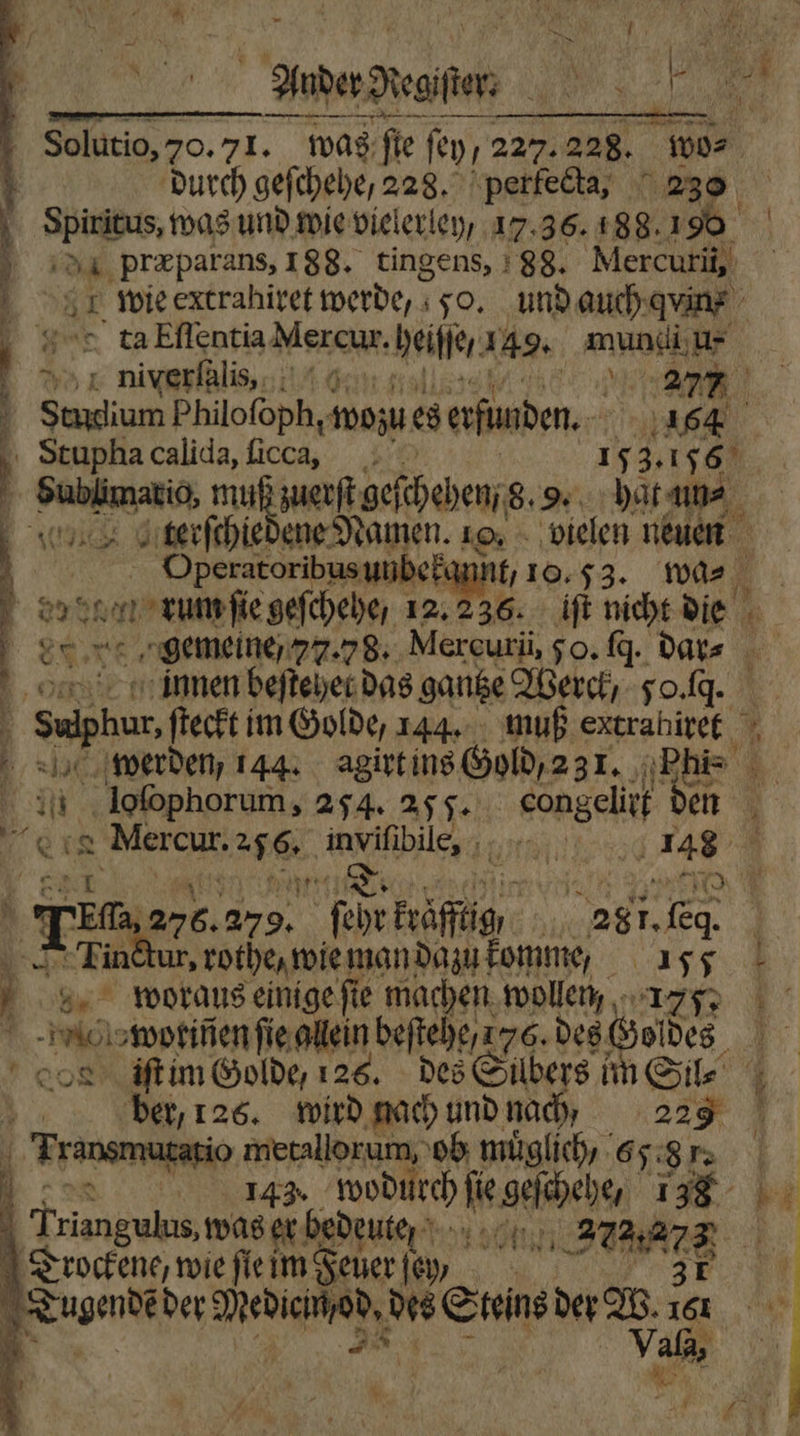 Ander Regiſter.
Solutio, 70. 71. was ſie ſey, 227. 228. wo⸗
durch geſchehe, 228. perfecta, 230
Spiritus, was und wie vielerley, 17. 36. 188. 190
præparans, 188. tingens, 188. Mercurii,
wie extrahiret werde, 50. und auch qvin⸗
ta Eſſentia Mercur. heiſſe, 149. mundi u⸗
niverſalis, 277
Studium Philoſoph, wozu es erfunden. 164
Stupha calida, ſicca, 153. 156
Sublimatio, muß zuerſt geſchehen, 8. 9. hat un⸗
terſchiedene Namen. 10. vielen neuen
Operatoribus unbekannt, 10. 53. wa⸗
rum ſie geſchehe, 12. 236. iſt nicht die
gemeine, 77. 78. Mercurii, 50. ſq. dar⸗
innen beſtehet das gantze Werck, 50. ſq.
Sulphur, ſteckt im Golde, 144. muß extrahiret
werden, 144. agirt ins Gold, 231. Phi⸗
loſophorum, 254. 255. congelirt den
Mercur. 256. inviſibile, 148
T.
TEſſa, 276. 279. ſehr kräfftig, 281. ſeq.
Tinctur, rothe, wie man dazu komme, 155
woraus einige ſie machen wollen, 175.
woriñen ſie allein beſtehe, 176. des Goldes
iſt im Golde, 126. des Silbers im Sil⸗
ber, 126. wird nach und nach, 229
Transmutatio metallorum, ob müglich, 65. 81.
143. wodurch ſie geſchehe, 138
Triangulus, was er bedeute, 272. 273
Trockene, wie ſie im Feuer ſey, 31
Tugendẽ der Medicin, od. des Steins der W. 161
Vaſa,